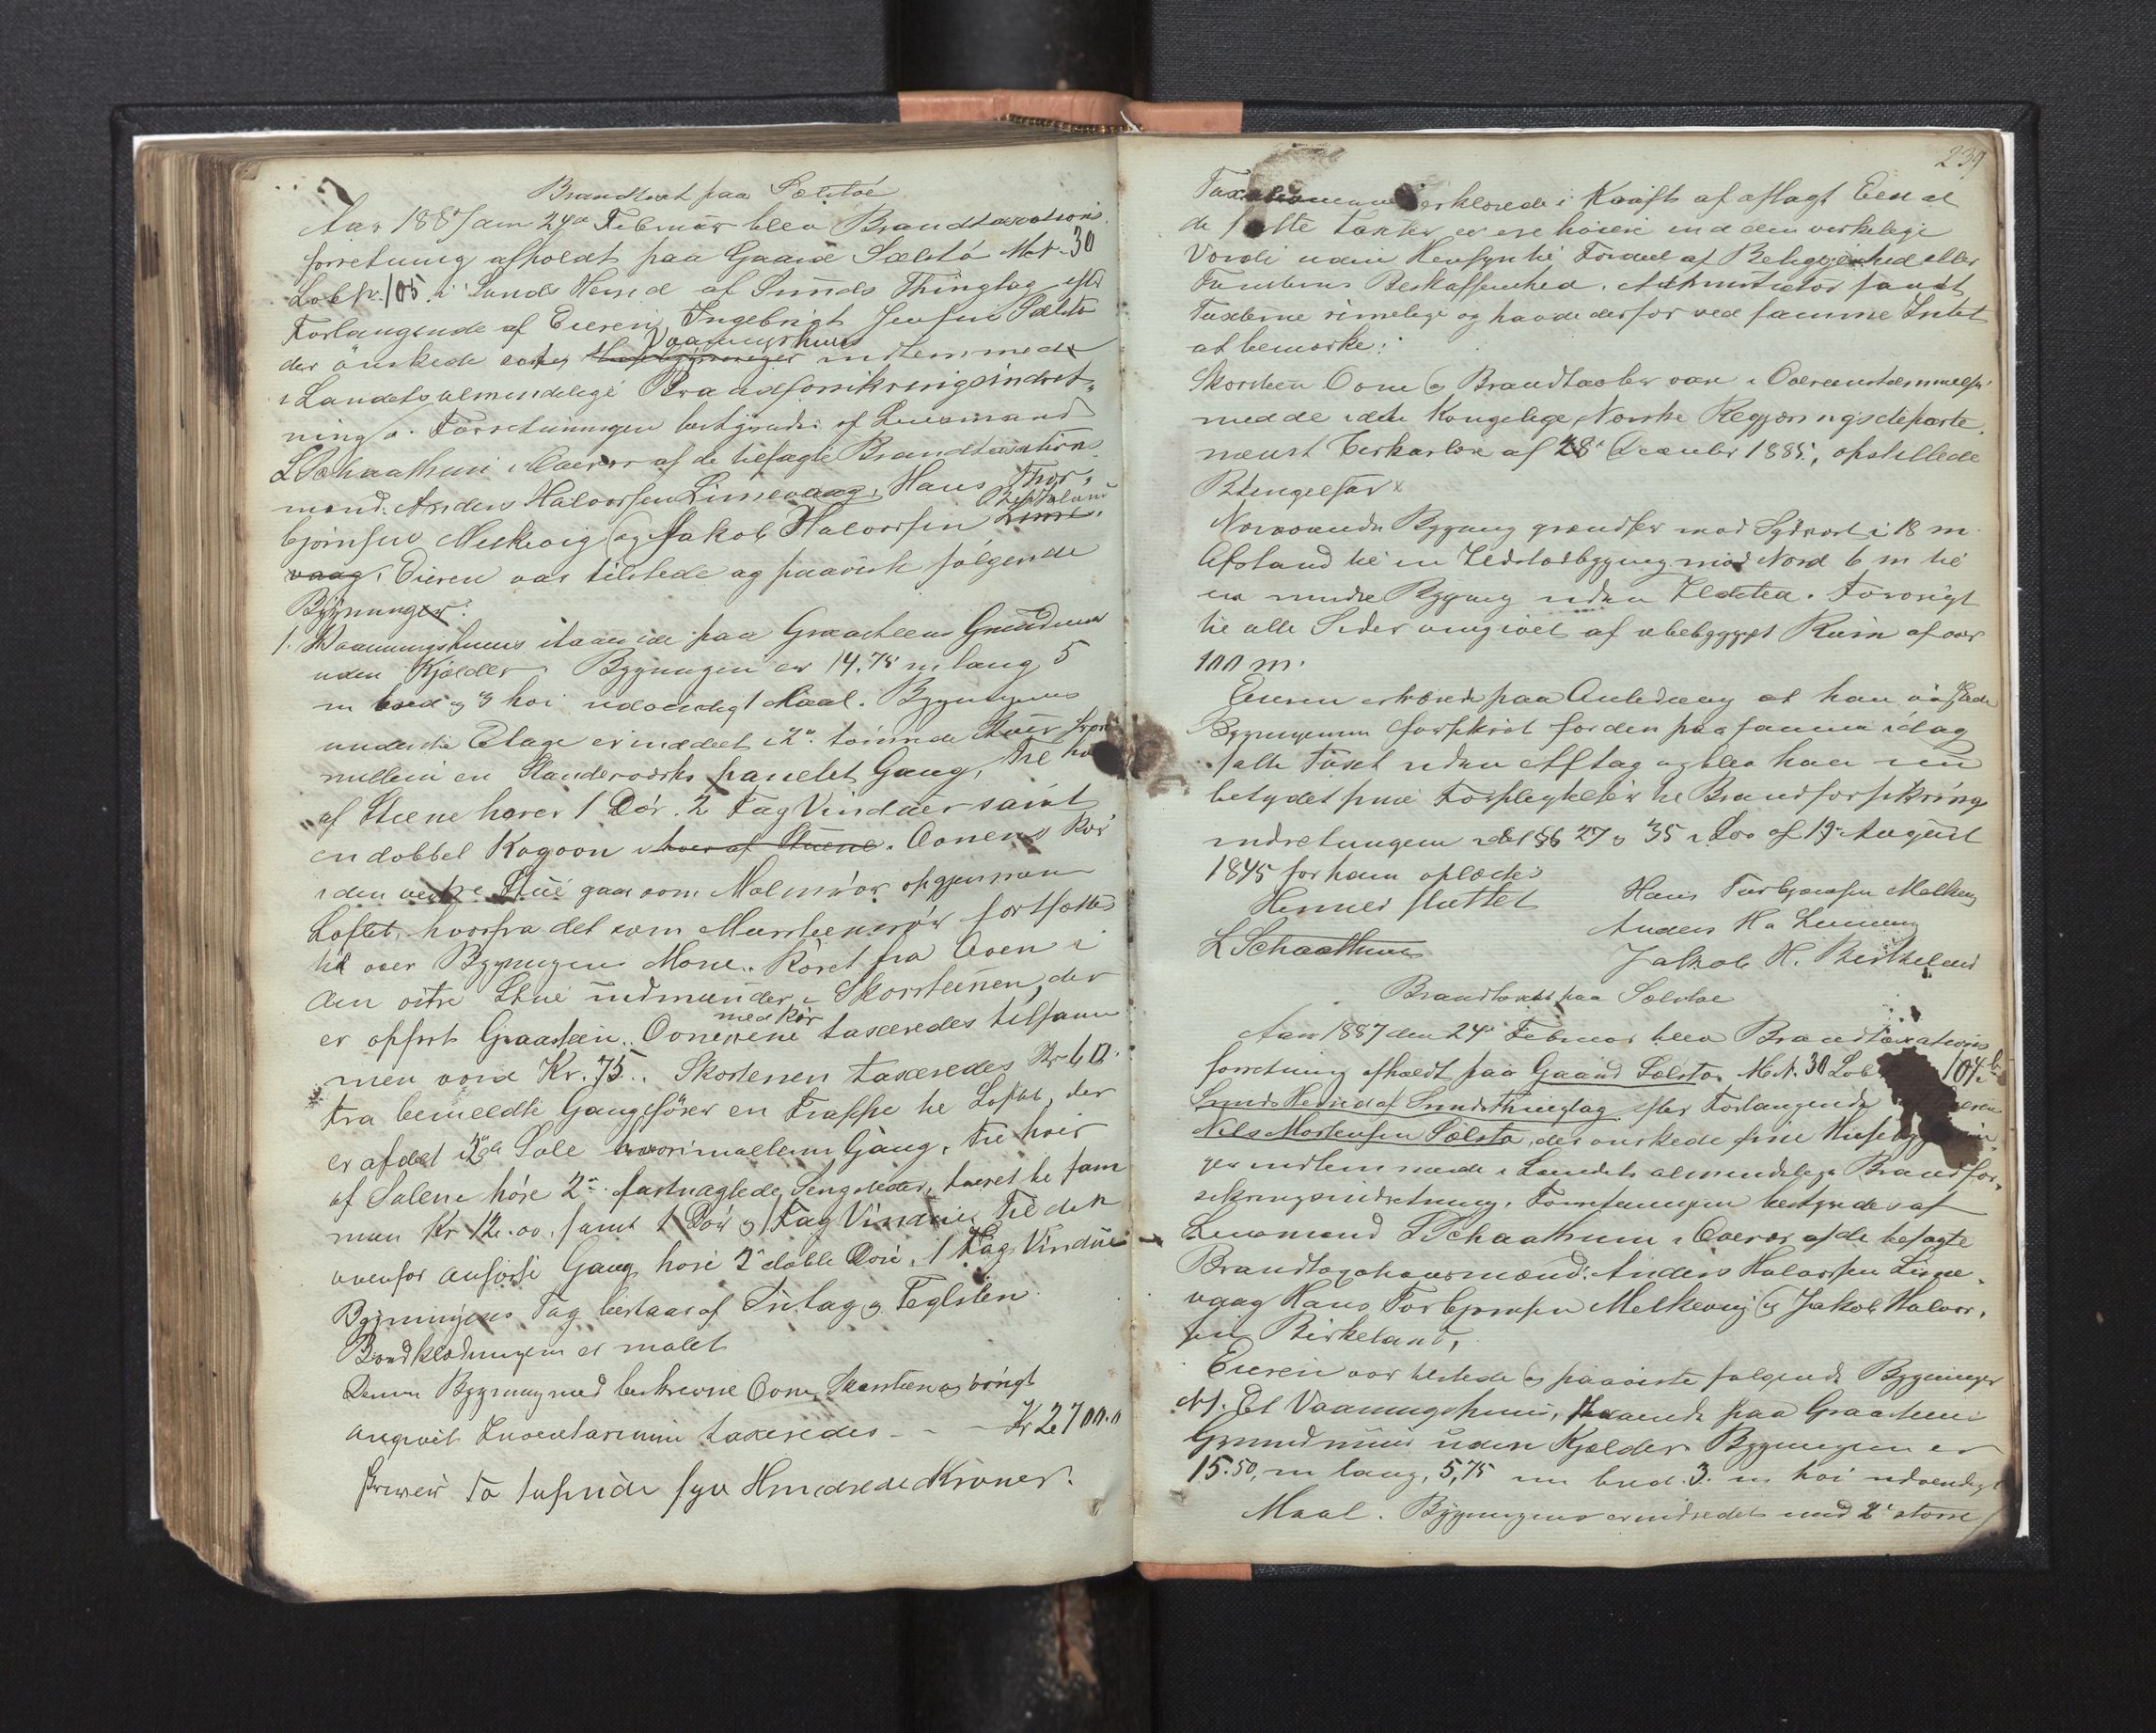 Brandtaxt paa Sælstø
Aar 1887 den 24de Februar blev Brandtaxations
forretning afholdt paa Gaard Sælstø Mt. 30
Lob Nr. 105 i Sunds Herred af Sunds Thinglag efter
Forlangende af Eieren Ingebrigt Jensen Sælstø
Vaaningshuus
der önskede indlemmede
i Landets almindelige Brandforsikringsindret-
ning. Forretningen bestyredes af Lensmand
L Schaathun i Overvær af de tilsagte Brandtaxations
mænd: Anders Halvorsen Limevaag, Hans Thor-
Birkeland
björnsen Melkevig og Jakob Halvorsen Lime-
vaag. Eieren var tilstede og paaviste følgende
Bygninger:
1. Vaaningshuus staaende paa Graasteens Grundmuur
uden Kjælder. Bygningen er 14,75 m lang 5
m bred og 3 høi udvendigt Maal. Bygningens
underste Etage er inddeelt i 2de tømrede Stuer hvori
mellem en Standerværks panelet Gang, Til hver
af Stuene hører 1 Dør. 2 Fag Vinduer samt
en dobbel Kogovn i hver af Stuene. Ovnens Rør
i den vestre Stue gaar som Malmrør op gjennem
Loftet, hvorfra det som Muursteensrør fortsættes
til over Bygningens Møne. Röret fra Ovnen i
den østre Stue indmunder i Skorstenen, der
er opført Graasten. Ovnene
med Rør
taxeredes tilsam
men ... Kr. 75.. Skorstenen taxeredes Kr 60.
Fra bemeldte Gang fører en Trappe til Loftet, der
er afdelt i 2de Sale hvorimellem Gang. Til hver
af Salene høre 2de fastnaglede Sengesteder, taxeret til sam
men Kr 12.00, samt 1 Dør og 1 Fag Vindue. Til den
ovenfor anførte Gang høre 2de doble Døre, 1 Fag Vindue
Bygningens Tag bestaar af Sutag og Teglsten.
Bordklædningen er malet
Denne Bygning med beskrevne Ovne, Skorsten og øvrigt
angivet Inventarium taxeredes - - - Kr 2700.0
skriver To tusinde syv Hundrede Kroner.
239
Taxationsmænd erklærede i Kraft af aflagt Eed at
de satte Taxter ei ere høiere end den virkelige
Værdi uden Hensyn til Fordeel af Beliggenhed eller
Tomtens Beskaffenhed. Administrator fandt
Taxterne rimelige og havde derfor ved samme Intet
at bemærke:
Skorsteen Ovne og Brandtavler vare i Overensstemmelse
med de i det Kongelige Norske Regjeringsdeparte-
ments Cirkulære af 28 December 1885, opstillede
Betingelser
Nærværende Bygning grændser mod Sydvest i 18 m.
Afstand til en Ildstedbygning mod Nord 6 m til
en mindre Bygning uden Ildsted. Forøvrigt
til alle Sider omgivet af ubebygget Rum af over
100 m.
Eieren erklærede paa Anledning at han önskede
Bygningerne forsikret for den paa samme idag
satte Taxt uden Aftag og blev han
betydet sine Forpligtelser til Brandforsikrings
indretningen i de § 27 og 35 i Lov af 19 August
1845 for ham oplæste
Hermed sluttet
Hans Torbjørnsen Melkevig
Anders H.
L Schaathun
Jakob H. Birkeland
Brandtaxt paa Sælstø
Aar 1887 den 24de Februar blev Brandtaxations
forretning afholdt paa Gaard Sælstø M.N. 30 Lob 104 b
Sunds Herred af Sunds Thinglag efter Forlangende
Nils Mortensen Sælstø, der önskede sine
ger indlemmede i Landets almindelige Brandfor-
sikringsindretning. Forretningen bestyredes af
Lensmand L Schaathun i Overvær af de tilsagte
Brandtaxationsmænd: Anders Halvorsen Lime-
vaag Hans Torbjørnsen Melkevig og Jakob Halvor-
sen Birkeland,
Eieren var tilstede og paaviste følgende Bygninger
N 1. Et Vaaningshuus, staaende paa Graasteens
Grundmuur uden Kjælder. Bygningen er
15.50, m lang, 5,75 m bred. 3. m høi udvendigt
Maal. Bygningens er indredet med 2de større